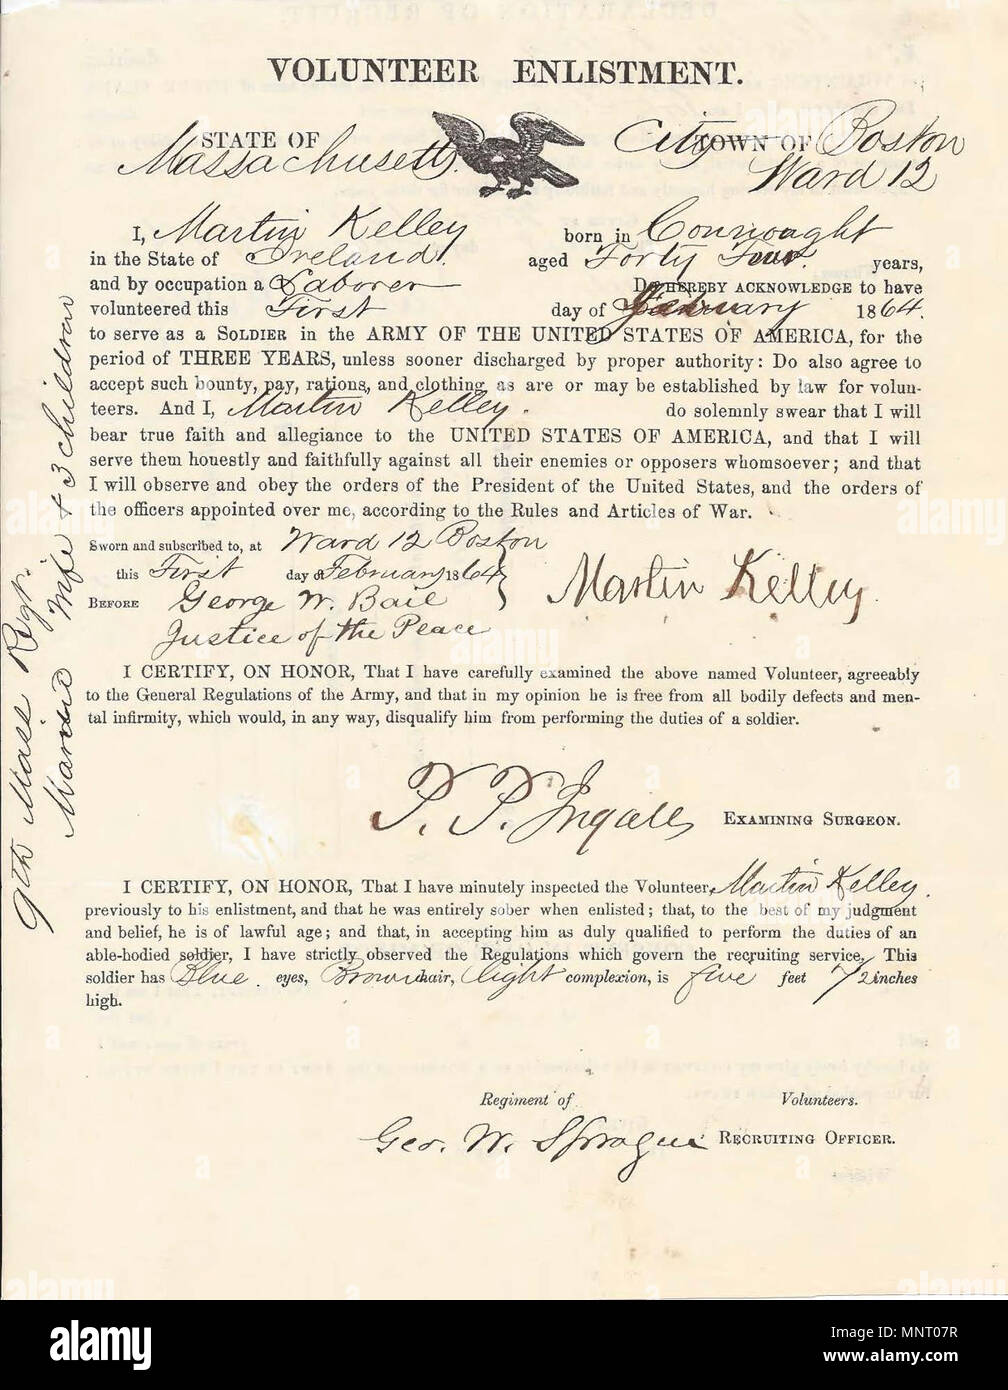 VOLUNTEER ENLISTMENT.
STATE OF Massachusetts. City TOWN OF Boston
Ward 12
I, Martin Kelley born in Connought
in the State of Ireland. aged Forty Four years,
and by occupation a Laborer Do HEREBY ACKNOWLEDGE to have
volunteered this First day of February 1864.
to serve as a SOLDIER in the ARMY OF THE UNITED STATES OF AMERICA, for the
period of THREE YEARS, unless sooner discharged by proper authority: Do also agree to
accept such bounty, pay, rations, and clothing, as are or may be established by law for volun-
teers. And I, Martin Kelley. do solemnly swear that I will
bear true faith and allegiance to the UNITED STATES OF AMERICA, and that I will
serve them honestly and faithfully against all their enemies or opposers whomsoever; and that
I will observe and obey the orders of the President of the United States, and the orders of
the officers appointed over me, according to the Rules and Articles of War.
Sworn and subscribed to, at Ward 12 Boston
this First day of February 1864
BEFORE George W. Bail
Justice of the Peace
Martin Kelley.
I CERTIFY, ON HONOR, That I have carefully examined the above named Volunteer, agreeably
to the General Regulations of the Army, and that in my opinion he is free from all bodily defects and men-
tal infirmity, which would, in any way, disqualify him from performing the duties of a soldier.
P. P. Ingalls EXAMINING SURGEON.
I CERTIFY, ON HONOR, That I have minutely inspected the Volunteer, Martin Kelley.
previously to his enlistment, and that he was entirely sober when enlisted; that, to the best of my judgment
and belief, he is of lawful age; and that, in accepting him as duly qualified to perform the duties of an
able-bodied soldier, I have strictly observed the Regulations which govern the recruiting service. This
soldier has Blue. eyes, Brown hair, light complexion, is five feet 7 1/2 inches
high.
Regiment of Volunteers.
Geo. W. Sprague RECRUITING OFFICER.
9th Mass Regt.
Married Wife + 3 children
alamy
Image ID: MNT07R
www.alamy.com